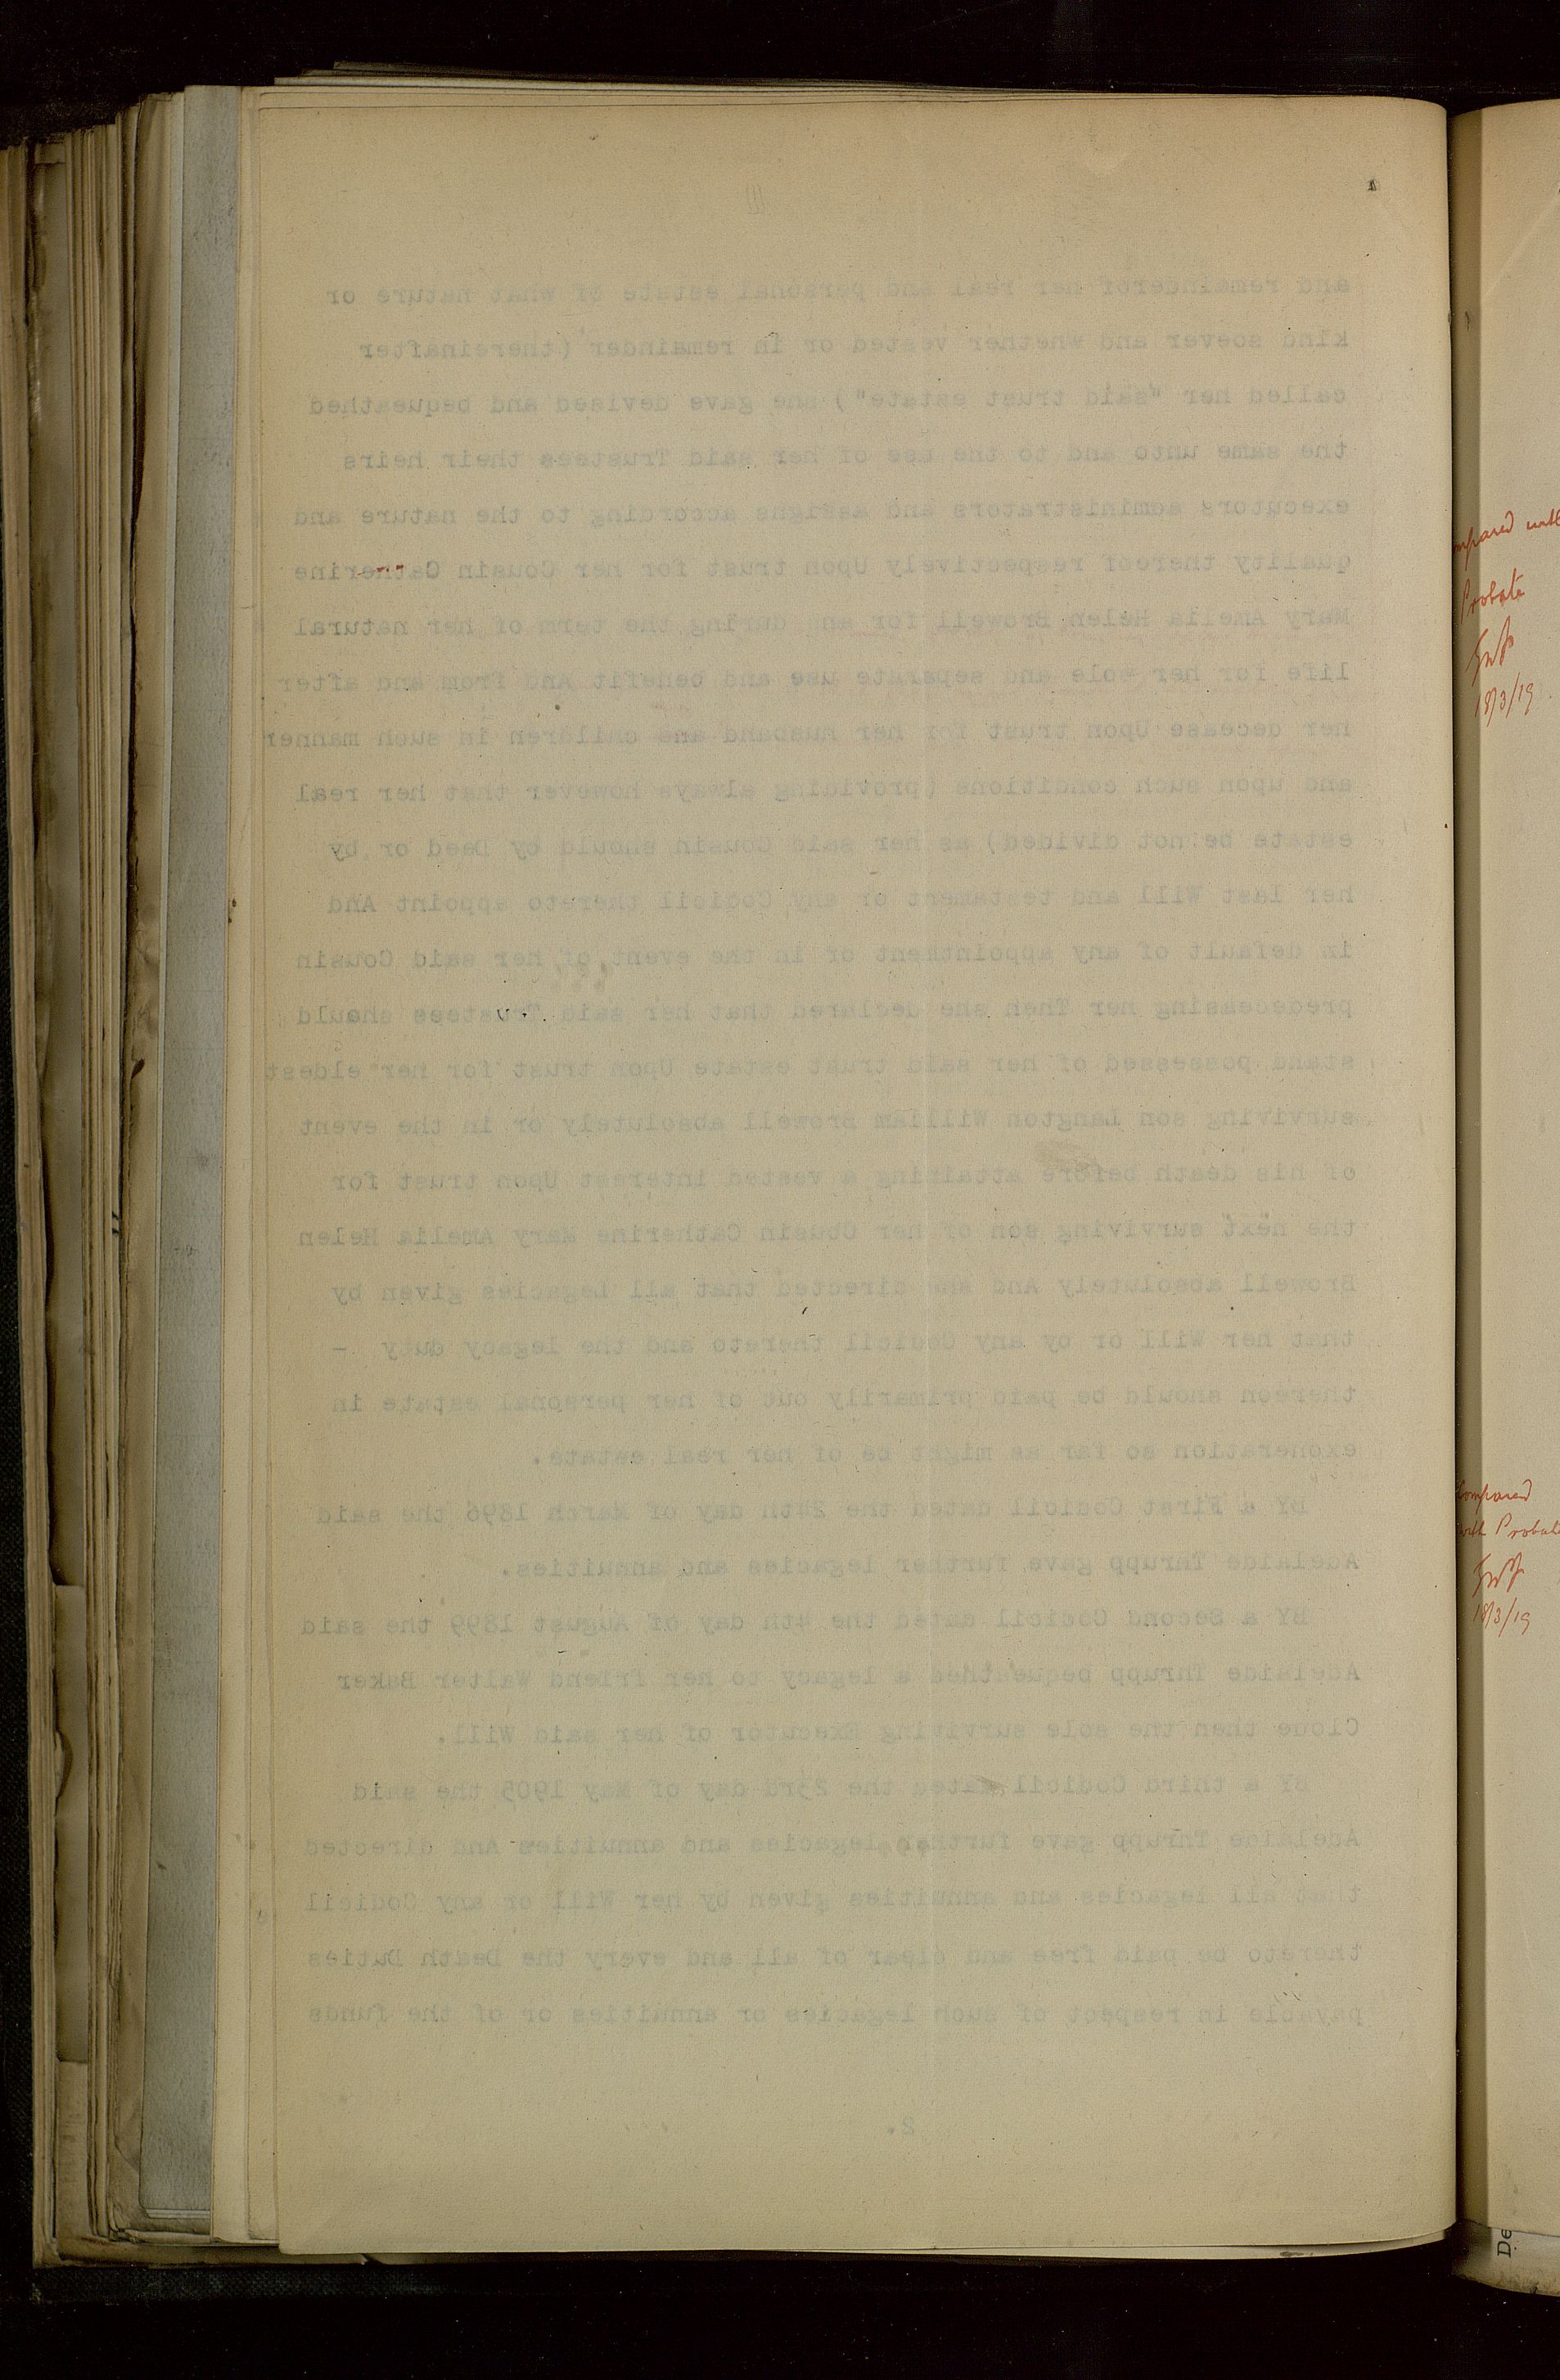 and remainderof her real and personal estate of what nature or
kind soever and whether vested or in remainder (thereinafter
called her "said trust estate") she gave devised and bequeathed
the same unto and to the use of her said Trustees their heirs
executors administrators and assigns according to the nature and
quality thereof respectively Upon trust for her Cousin Catherine
Mary Amelia Helen Browell for and during the term of her natural
life for her sole and separate use and benefit And from and after
her decease Upon trust for her husband and children in such manner
and upon such conditions (providing always however that her real
estate be not divided) as her said Cousin should by Deed or by
her last Will and testament or any Codicil thereto appoint And
in default of any appointment or in the event of her said Cousin
predeceasing her Then she declared that her said Trustees should
stand possessed of her said trust estate Upon trust for her eldest
surviving son Langton William Browell absolutely or in the event
of his death before attaining a vested interest Upon trust for
the next surviving son of her Cousin Catherine Mary Amelia Helen
Browell absolutely And she directed that all legacies given by
that her Will or by any Codicil thereto and the legacy duty -
thereon should be paid primarily out of her personal estate in
exoneration so far as might be of her real estate.
BY a First Codicil dated the 24th day of March 1896 the said
Adelaide Thrupp gave further legacies and annuities.
BY a Second Codicil dated the 4th day of August 1899 the said
Adelaide Thrupp bequeathed a legacy to her friend Walter Baker
Cloue then the sole surviving Executor of her said Will.
BY a third Codicil dated the 23rd day of May 1905 the said
Adelaide Thrupp gave further legacies and annuities And directed
that all legacies and annuities given by her Will or any Codicil
thereto be paid free and clear of all and every the Death Duties
payable in respect of such legacies or annuities or of the funds
2.
mpared with
Probate
18/3/19
Compared
with Probate
18/3/19
De